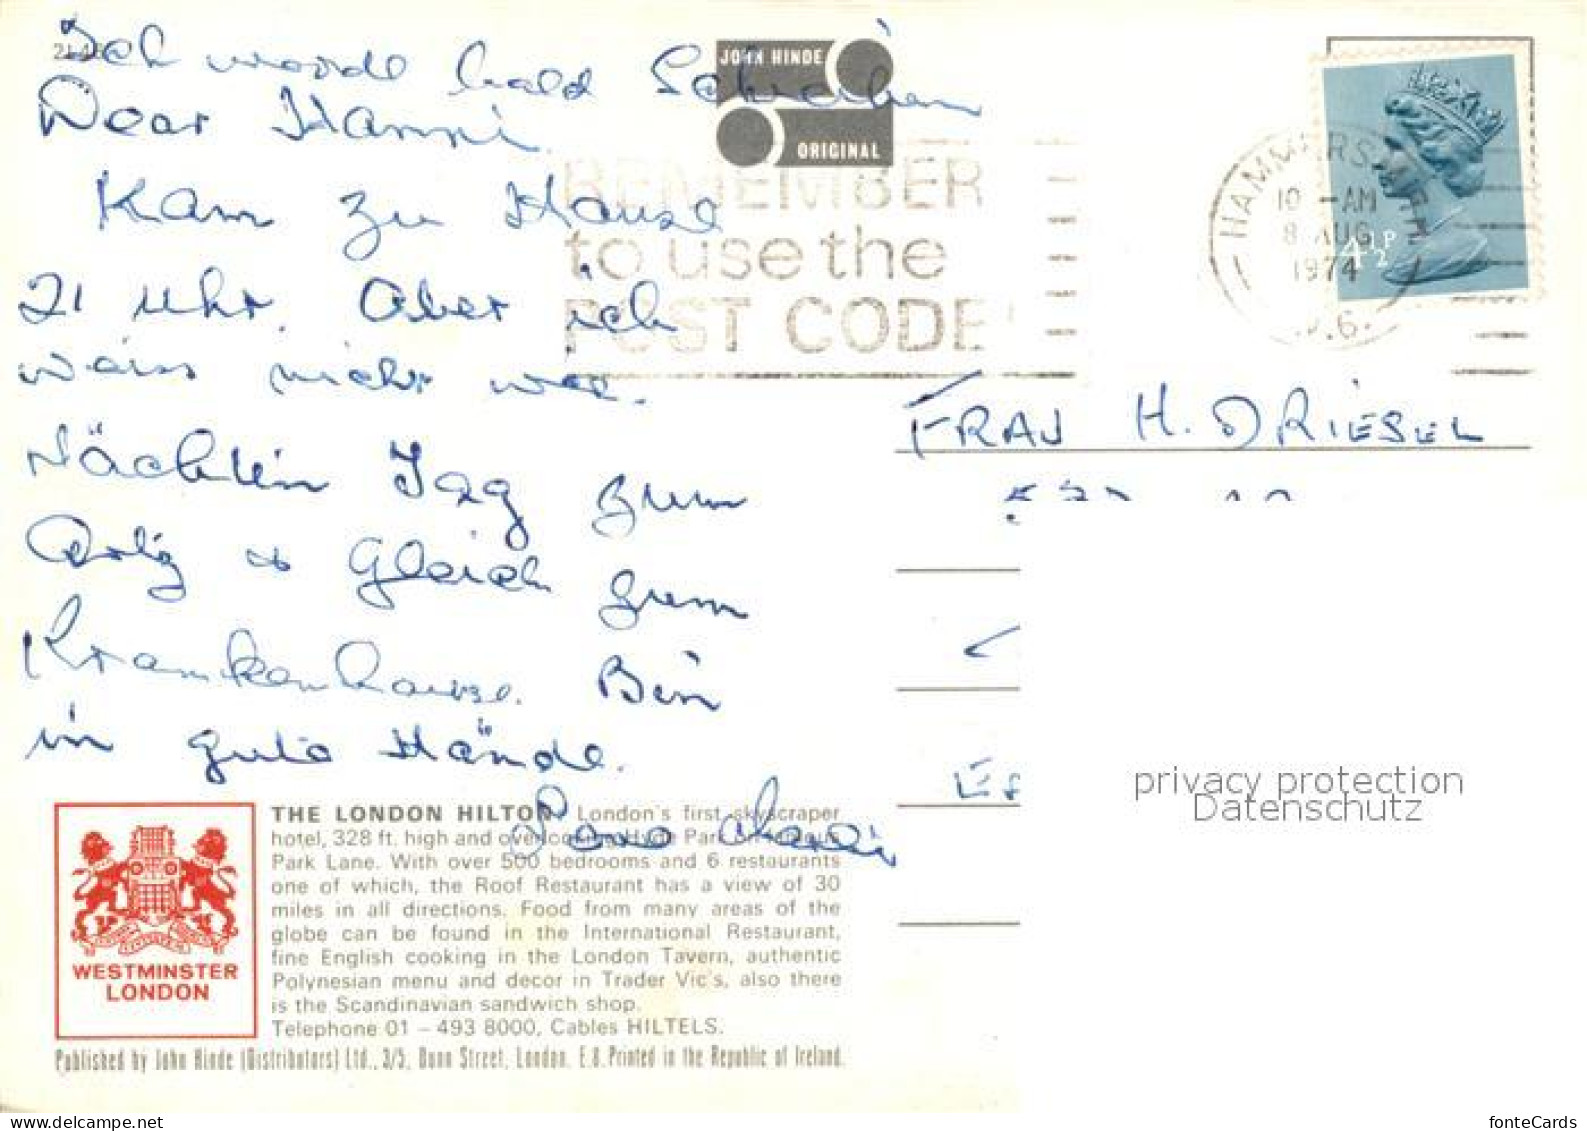 Ich werde bald Schreiben
Dear Hanni
Kam zu Hause
21 Uhr. Aber ich
weiss nicht wie.
Nächsten Tag zum
Artz + Gleich zum
Krankenhause. Bin
in gute Hände.
JOHN HINDE
ORIGINAL
REMEMBER
to use the
POST CODE
HAMMERSMITH
10 - AM
8 AUG
1974
W.6.
4½P
FRAU H. DRIESEL
privacy protection
Datenschutz
WESTMINSTER
LONDON
THE LONDON HILTON. London's first skyscraper
hotel, 328 ft. high and overlooking Hyde Park on famous
Park Lane. With over 500 bedrooms and 6 restaurants
one of which, the Roof Restaurant has a view of 30
miles in all directions. Food from many areas of the
globe can be found in the International Restaurant,
fine English cooking in the London Tavern, authentic
Polynesian menu and decor in Trader Vic's, also there
is the Scandinavian sandwich shop.
Telephone 01 – 493 8000, Cables HILTELS.
Published by John Hinde (Distributors) Ltd., 3/5, Dunn Street, London. E.8. Printed in the Republic of Ireland.
fonteCards